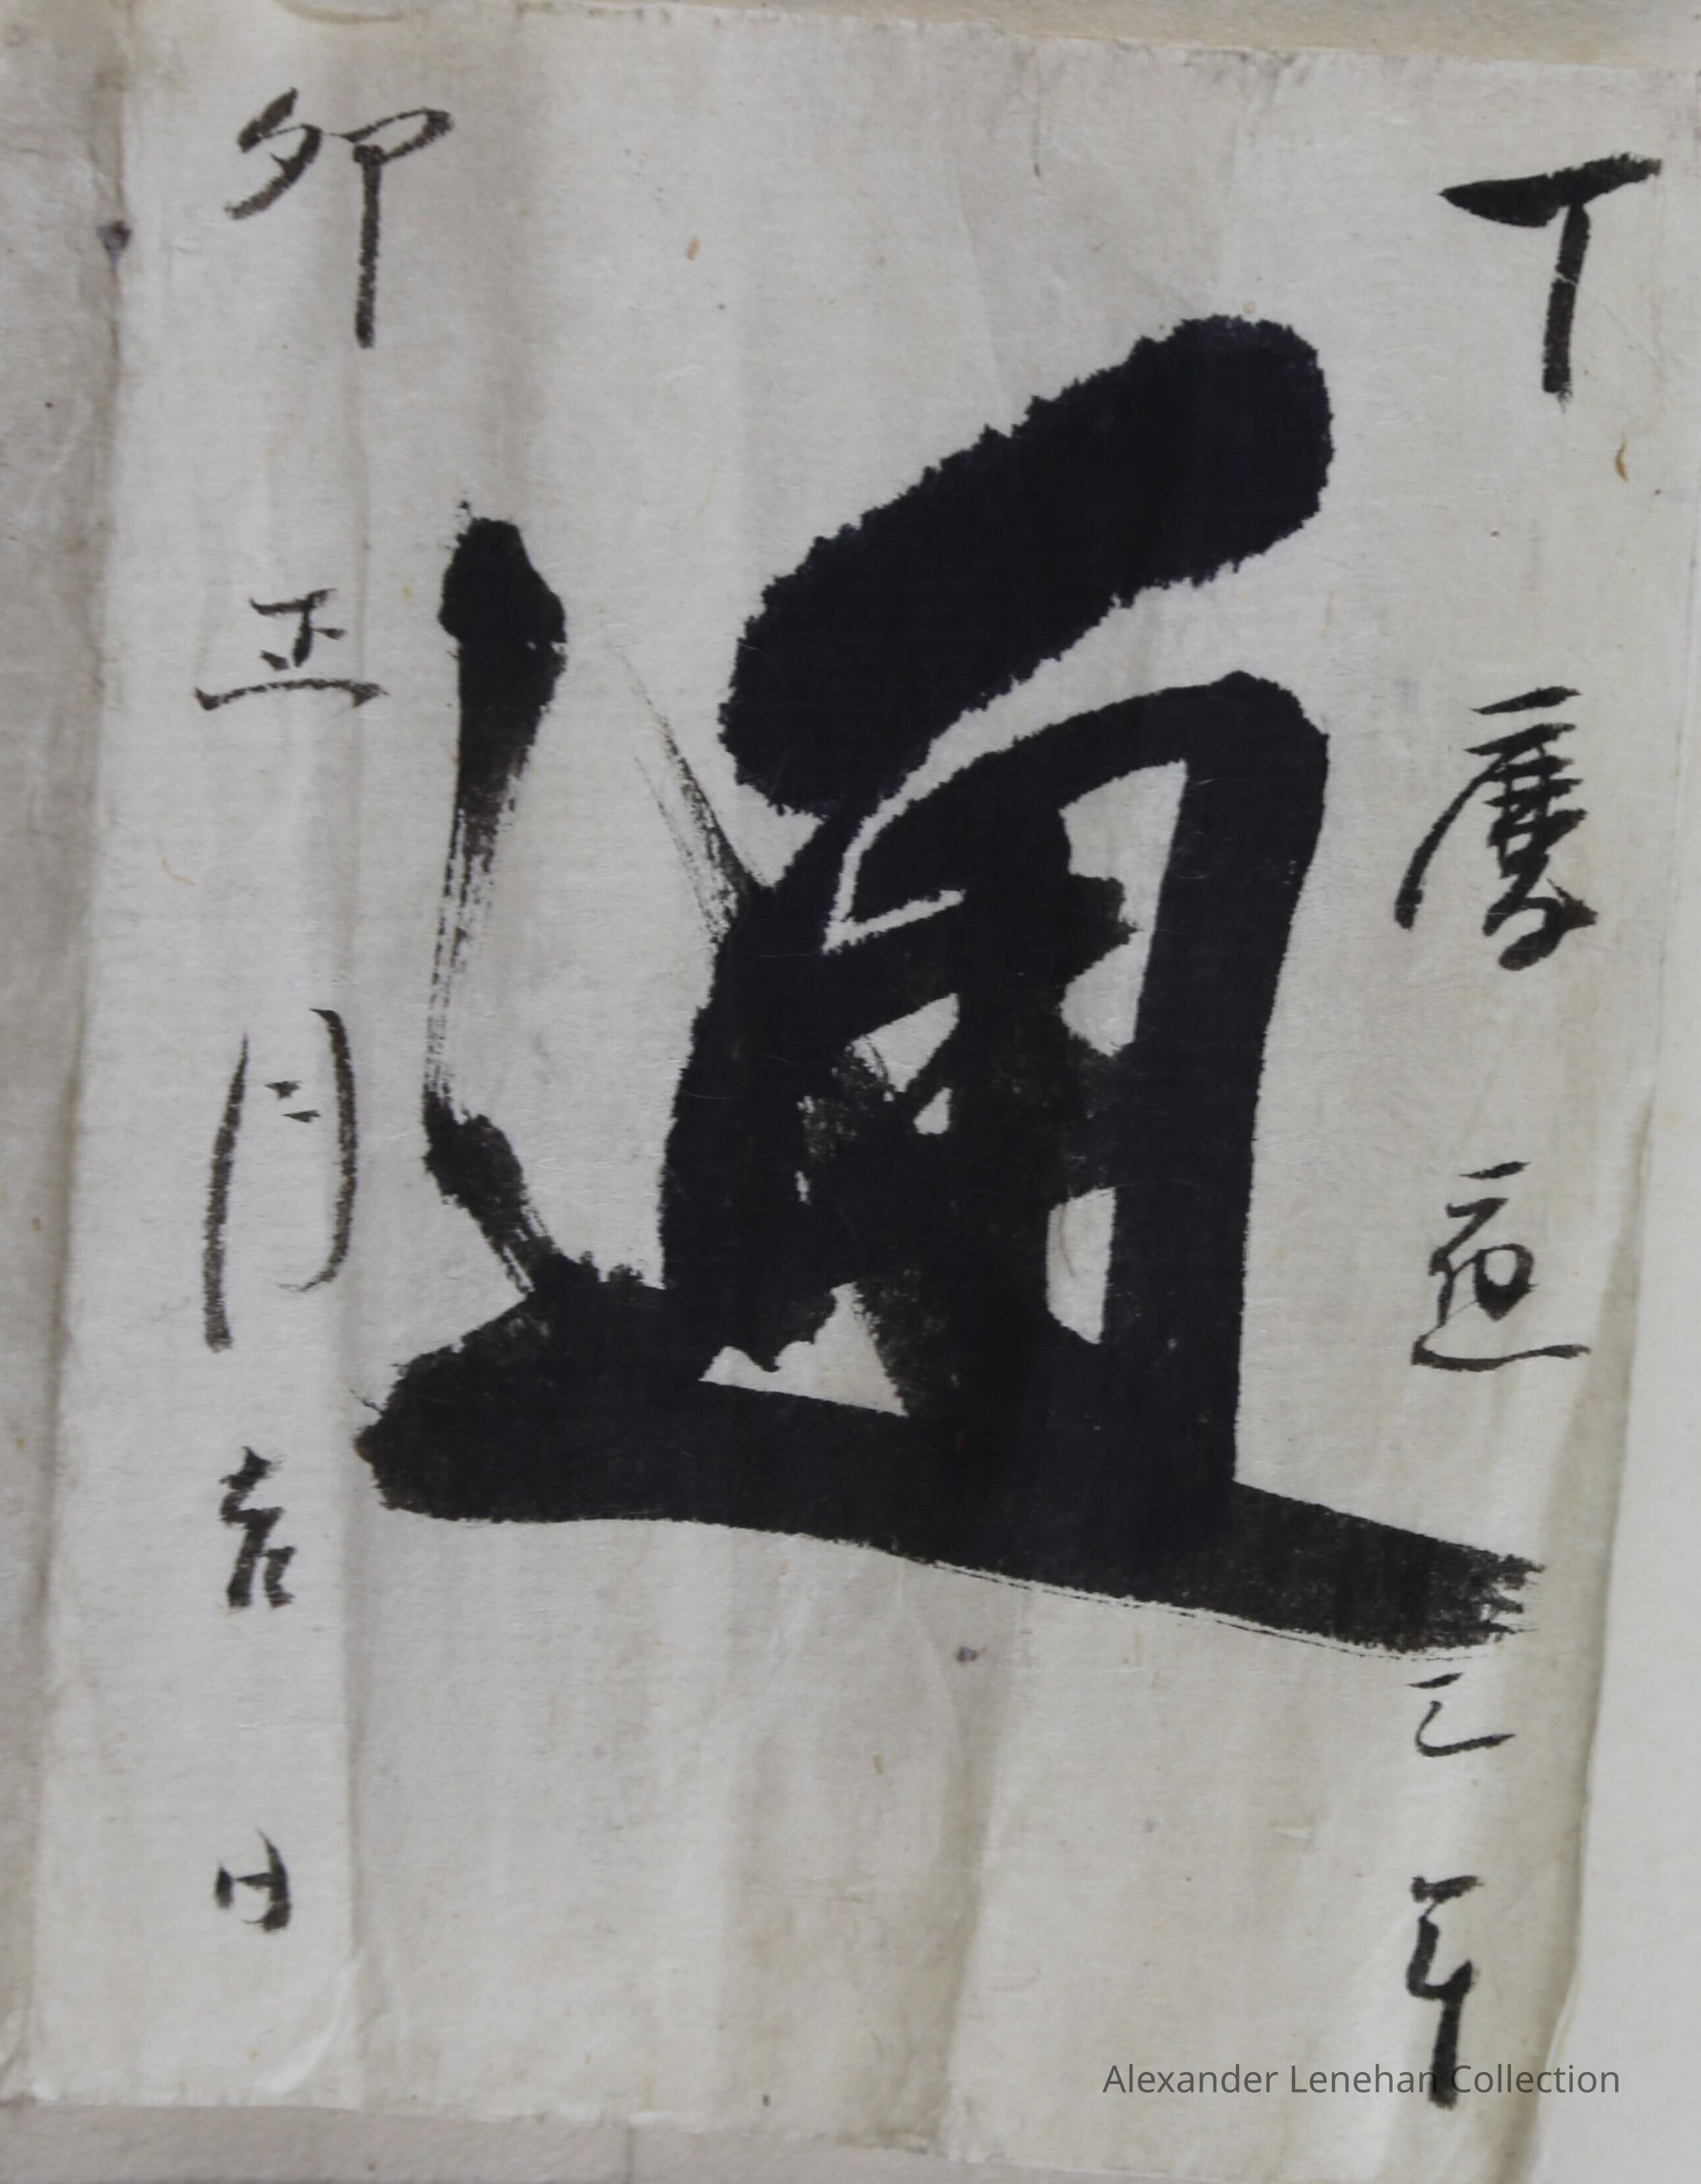 丁慶應三年
通
卯正月吉日
Alexander Lenehan Collection